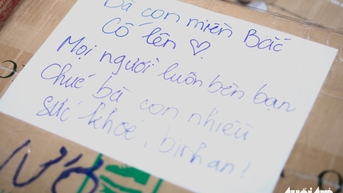 Bà con miền Bắc
Cố lên ♡
Mọi người luôn bên bạn
Chúc bà con nhiều
sức khoẻ, bình an!